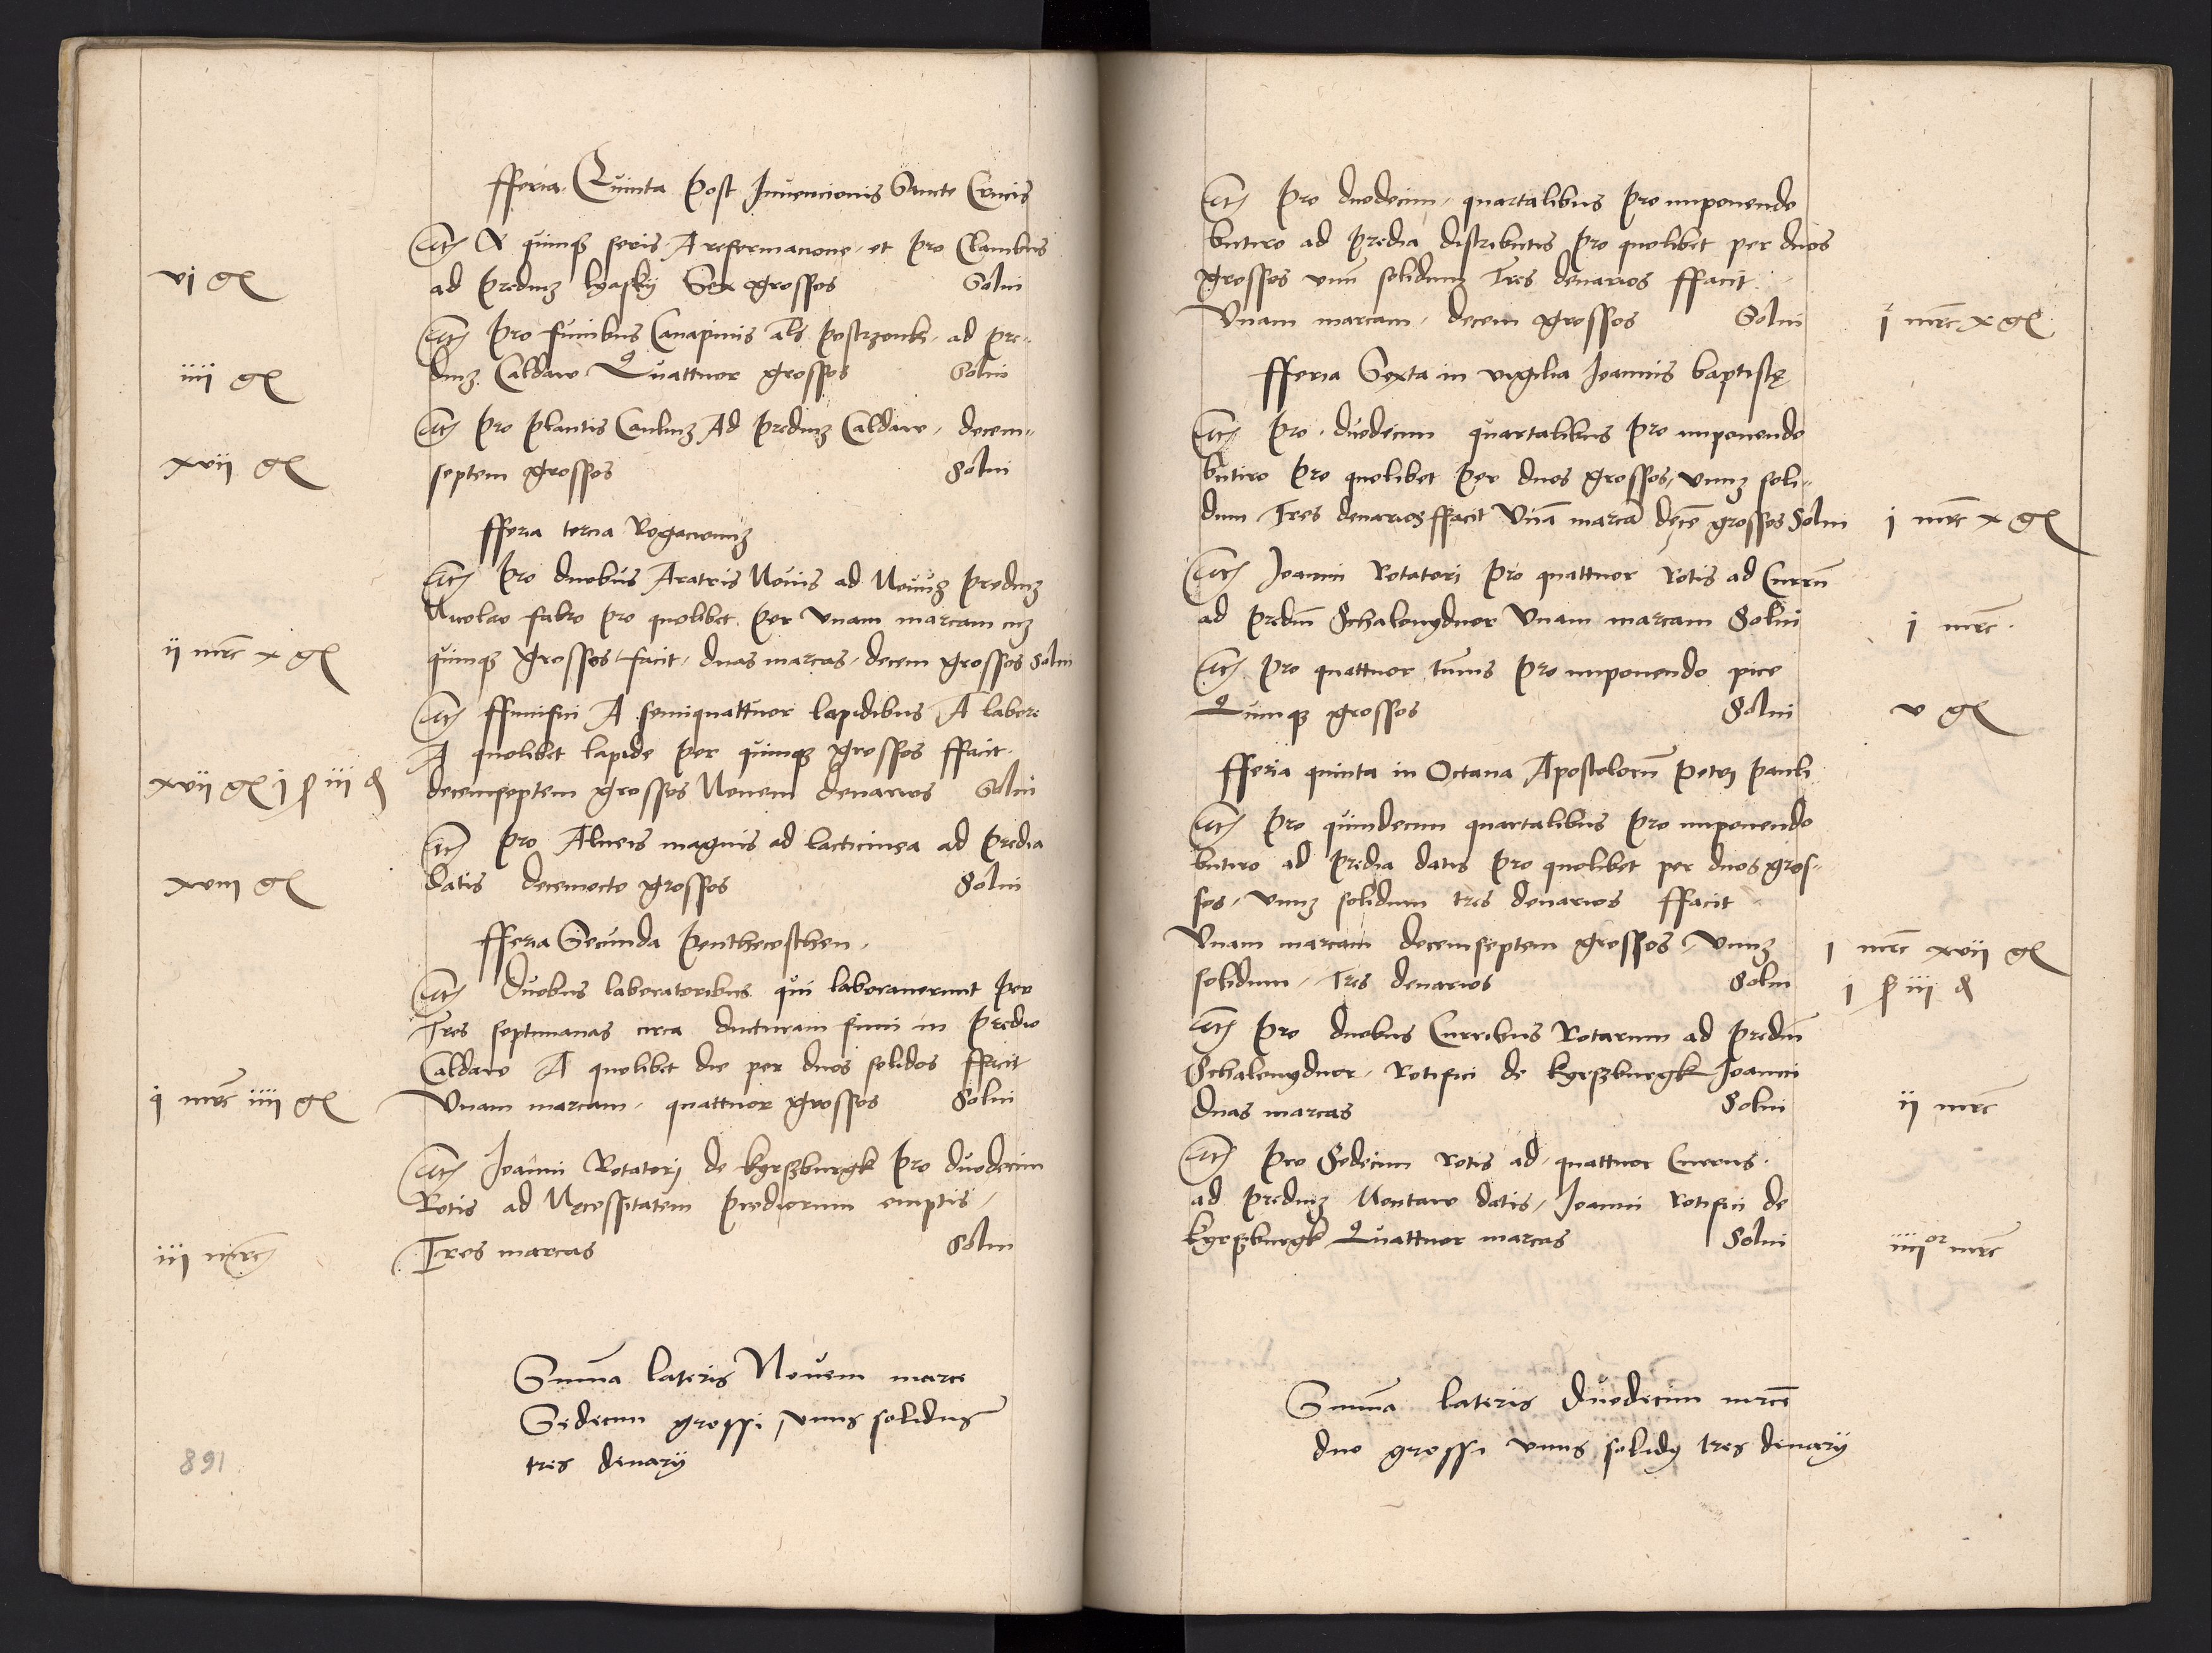 fferia Quinta post Invencionis Sancte Crucis
Itē A quinqȝ seris A reformacione et pro Clavibus
vi gͬ ad prediuȝ lyaskij Sex grossos Solvi
Itē pro funibus Canapinis als postrzonki ad pre-
iiii gͬ diuȝ Caldaw Quattuor grossos Solvi
Itē pro plantis Cauliuȝ Ad prediuȝ Caldaw decem-
xvii gͬ septem grossos Solvi
fferia tercia Rogacionuȝ
Itē pro duobus Aratris Novis ad Novuȝ prediuȝ
Nicolao fabro pro quolibet per Vnam marcam cuȝ
ii mrc x gͬ quinqȝ grossos facit duas marcas decem grossos Solvi
Itē ffunifici A semiquattuor lapidibus A labore
A quolibet lapide per quinqȝ grossos ffacit
xvii gͬ i ß iii ₰ decemseptem grossos Novem denarios Solvi
Itē pro Alveis magnis ad lacticinea ad predia
xviii gͬ datis decemocto grossos Solvi
fferia Secunda penthecosthen
Itē Duobus laboratoribus qui laboraverunt per
Tres septimanas circa ducturam fimi in predio
Caldaw A quolibet die per duos solidos ffacit
i mrc iiii gͬ Vnam marcam quattuor grossos Solvi
Itē Joanni Rotatorj de kyrszburgk pro duodecim
Rotis ad Necessitatem prediorum emptis
iii mrc Tres marcas Solvi
Summa lateris Novem marce
Sedecim grossi vnus solidus
tres denarij
891
Itē pro duodecim quartalibus pro imponendo
butiro ad predia distributis pro quolibet per duos
grossos vnū solidum Tres denarios ffacit
Vnam marcam decem grossos Solvi i mrc x gͬ
fferia Sexta in vigilia Joannis baptistę
Itē pro duodecim quartalibus pro imponendo
butiro pro quolibet per duos grossos vnuȝ soli-
dum Tres denarios ffacit Vnā marcā decē grossos Solvi i mrc x gͬ
Itē Joanni Rotatori pro quattuor rotis ad Currū
ad prediū Schalewydwor Vnam marcam Solvi i mrc
Itē pro quattuor tunnis pro imponendo pice
Quinqȝ grossos Solvi v gͬ
fferia quinta in Octava Apostolorū Petri Pauli
Itē pro quindecim quartalibus pro imponendo
butiro ad predia datis pro quolibet per duos gros-
sos vnuȝ solidum tres denarios ffacit
Vnam marcam decemseptem grossos vnuȝ i mrc xvii gͬ
solidum Tres denarios Solvi i ß iii ₰
Itē pro duobus Curribus Rotarum ad prediū
Schalewydwor Rotifici de kyrszburgk Joanni
duas marcas Solvi ii mrc
Itē pro Sedecim rotis ad quattuor Currus
ad prediuȝ Montaw datis Joanni rotifici de
kyrszburgk Quattuor marcas Solvi iiiior mrc
Summa lateris duodecim mrce
duo grossi vnus solidꝰ tres denarij